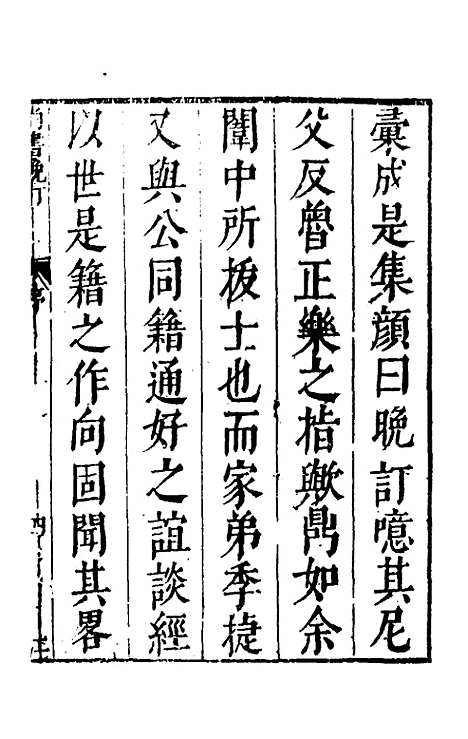 彙成是集顏曰晚訂噫其尼
父反魯正樂之指歟鼎如余
闈中所拔士也而家弟季捷
又與公同籍通好之誼談經
以世是籍之作向固聞其畧
尚書晚訂
序